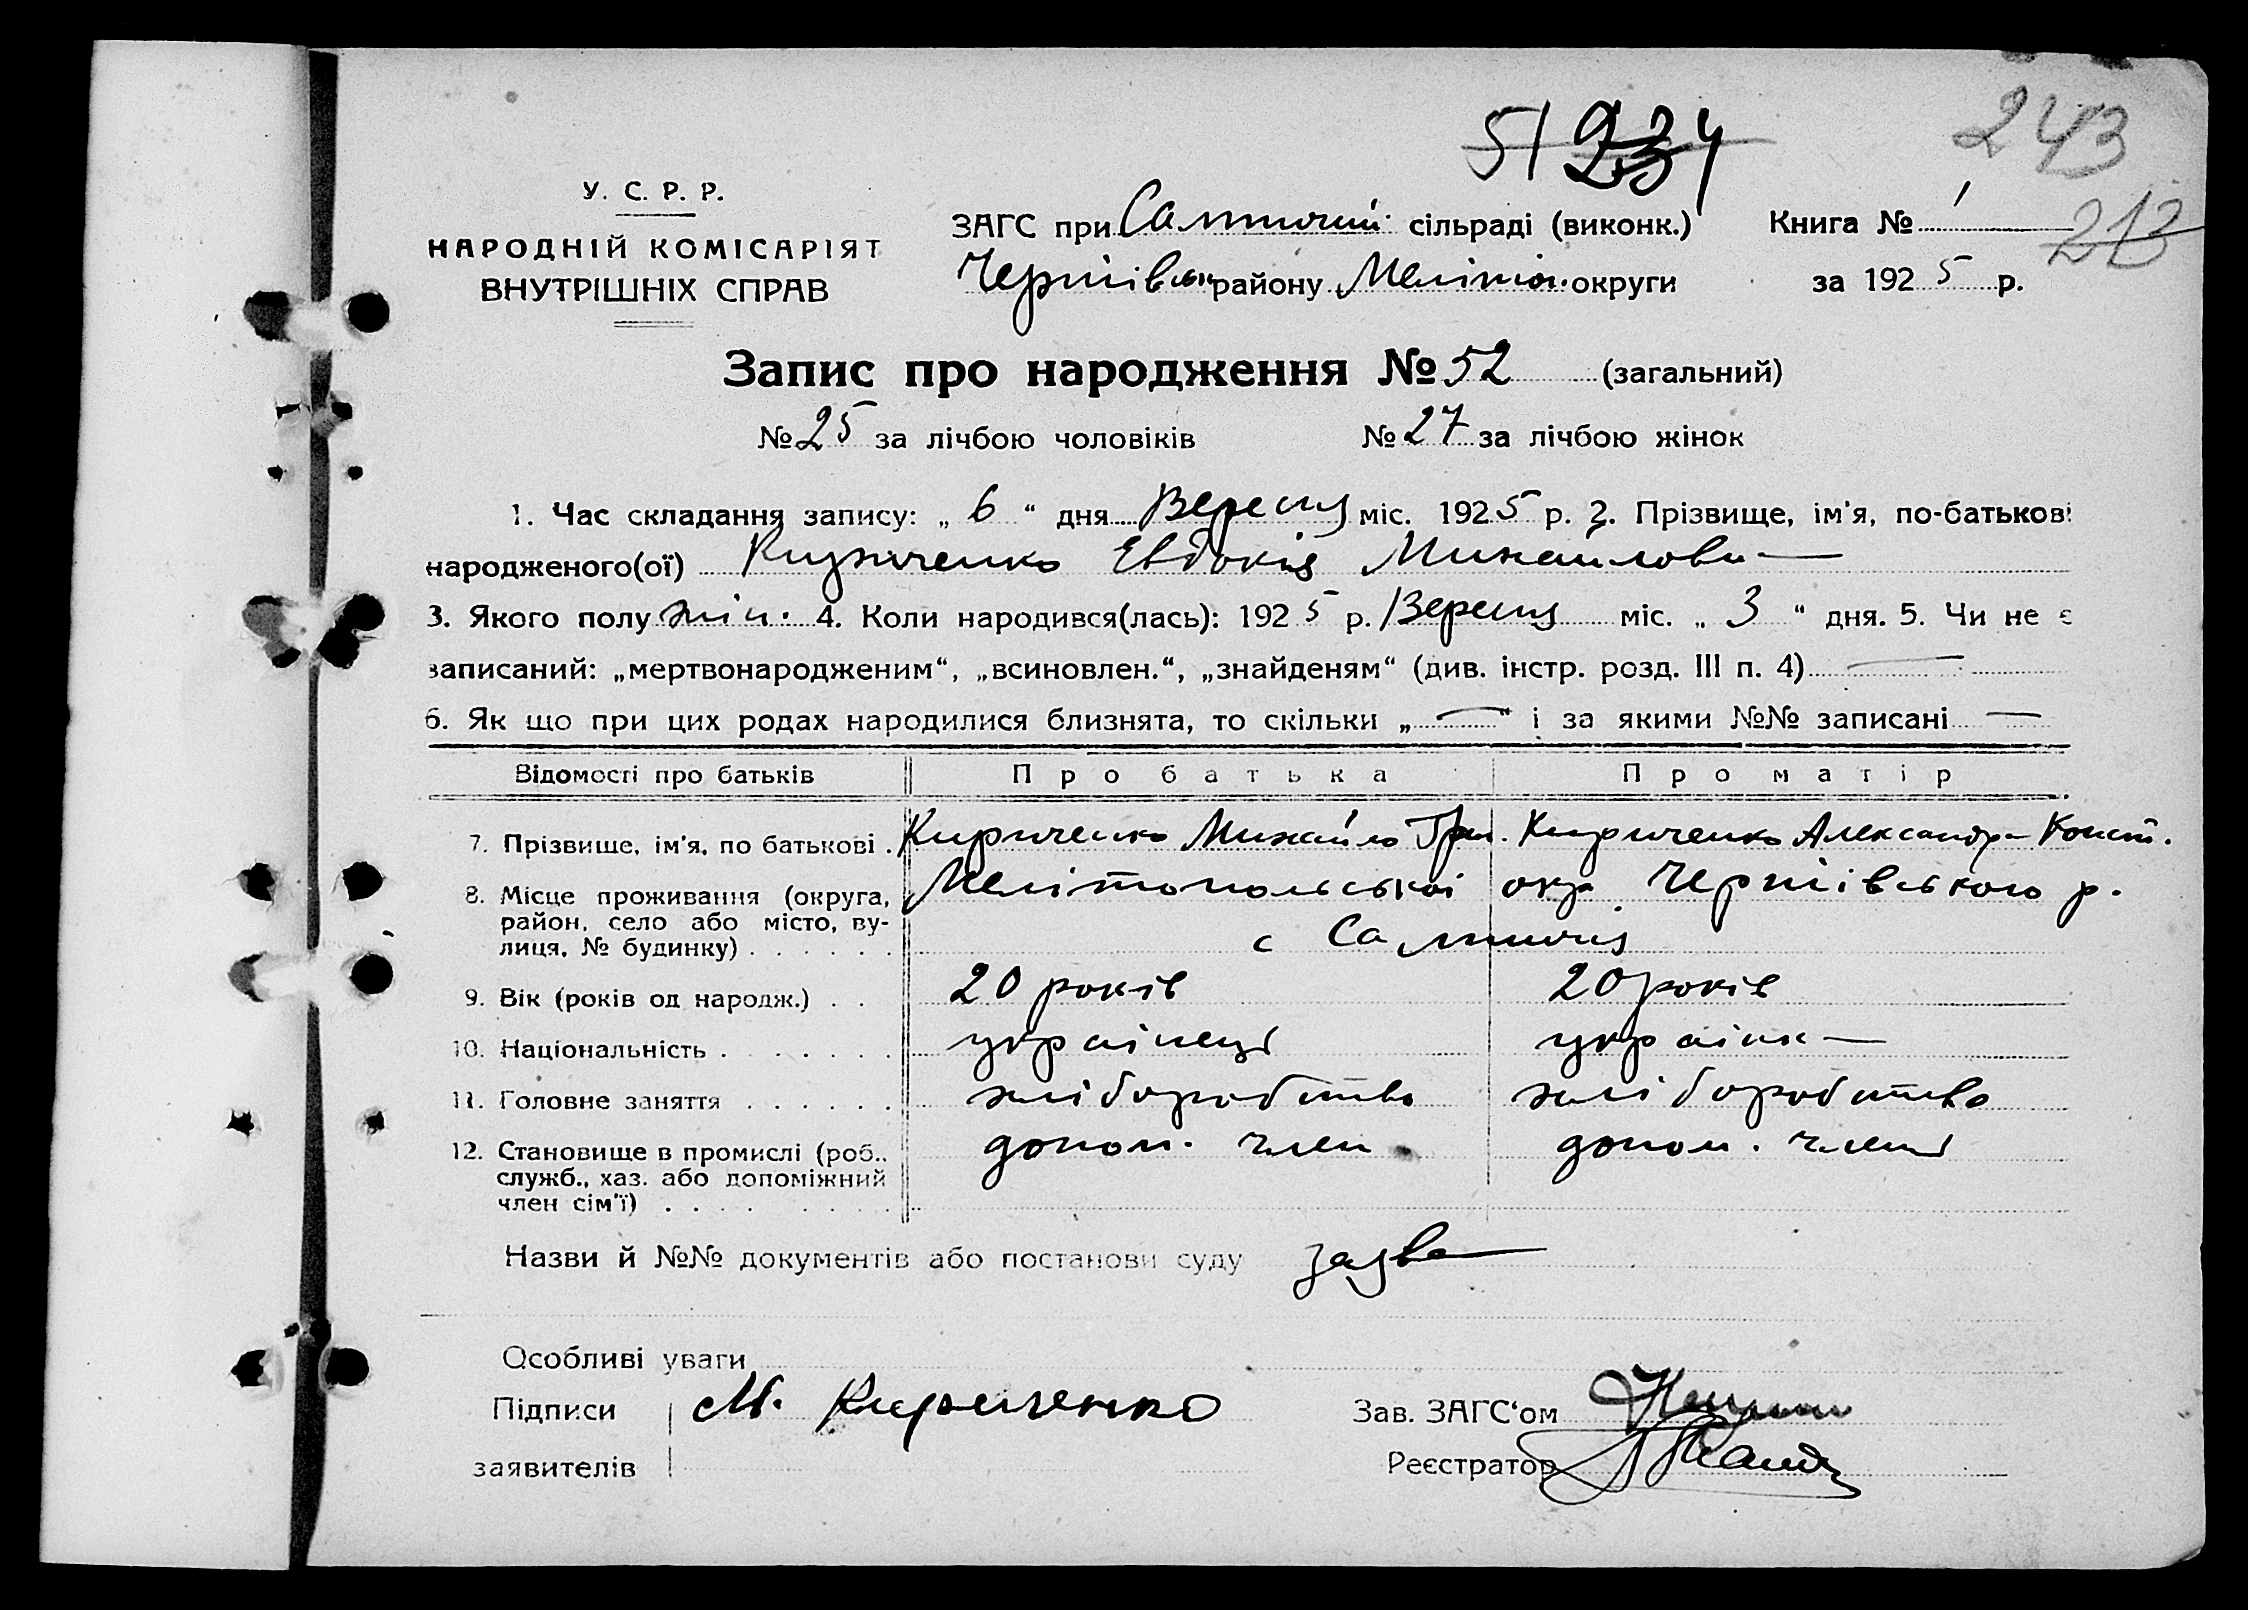 51 234
243
У. С. Р. Р.
НАРОДНІЙ КОМІСАРІЯТ
ВНУТРІШНІХ СПРАВ
ЗАГС при Салтичий сільраді (виконк.)
Чернiївськ району Меліток. округи
Книга № 1
213
за 1925 р.
Запис про народження № 52 (загальний)
№ 25 за лічбою чоловіків № 27 за лічбою жінок
1. Час складання запису: „ 6 “ дня Вересня міс. 1925 р. 2. Прізвище, ім'я, по-батькові
народженого(ої) Кириченко Евдокія Михайлови—
3. Якого полу жін. 4. Коли народився(лась): 1925 р. Вересня міс. „ 3 “ дня. 5. Чи не є
записаний: „мертвонародженим“, „всиновлен.“, „знайденям“ (див. інстр. розд. III п. 4) —
6. Як що при цих родах народилися близнята, то скільки „ — “ і за якими №№ записані —
Відомості про батьків Про батька Про матір
7. Прізвище, ім'я, по батькові . Кириченко Михайло Гри. Кириченко Александра Конст.
8. Місце проживання (округа, Мелітопольської окр. Чернiївського р.
район, село або місто, ву-
лиця, № будинку) . . . . . . с Салтичия
9. Вік (років од народж.) . . 20 років 20 років
10. Національність . . . . . . . українець українк—
11. Головне заняття . . . . . . хліборобство хліборобство
12. Становище в промислі (роб., допом. член допом. член
служб., хаз. або допоміжний
член сім'ї) . . . . . . . .
Назви й №№ документів або постанови суду заява
Особливі уваги
Підписи М. Кириченко Зав. ЗАГС'ом
заявителів Реєстратор